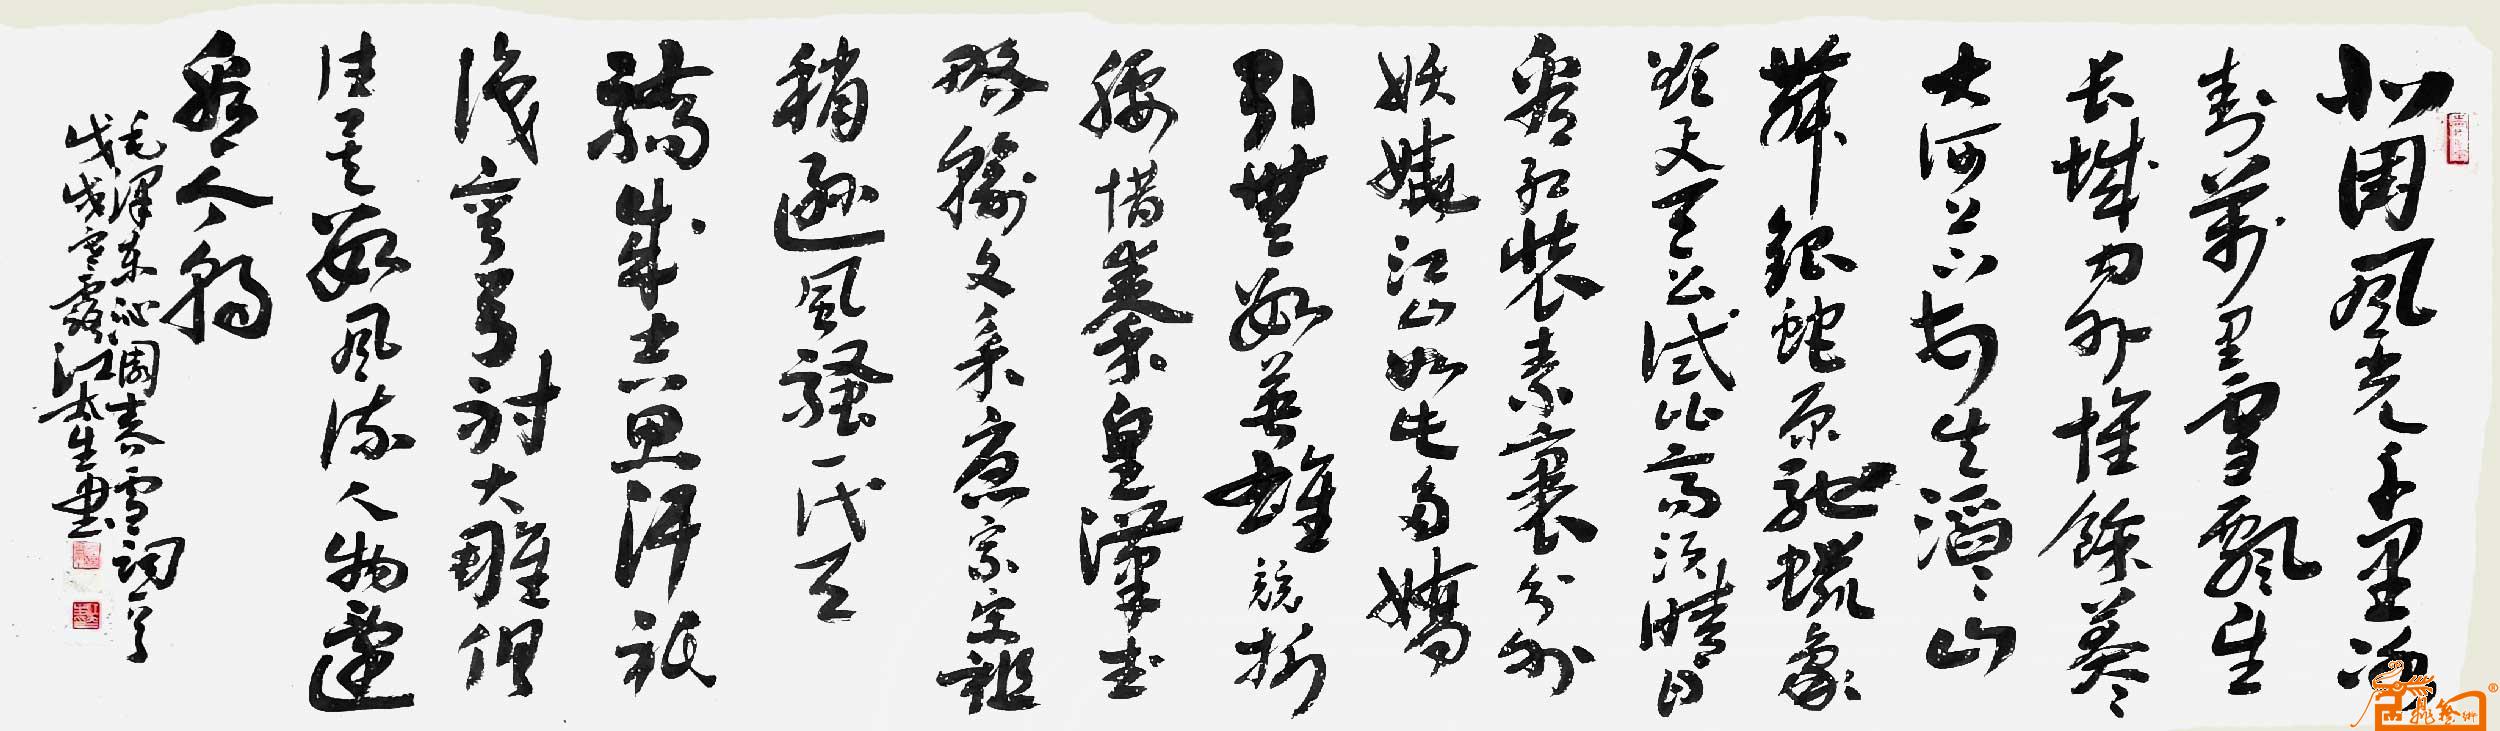 北国风光千里冰
封萬里雪飄望
长城内外惟餘莽々
大河上下顿失滔々山
舞银蛇原驰蜡象
欲与天公试比高须晴日
看红装素裹分外
妖娆江山如此多娇
引無数英雄竞折
腰惜秦皇漢武
略输文采唐宗宋祖
稍逊風骚一代天
骄成吉思汗祗
识弯弓射大雕俱
往矣数风流人物还
看今朝
毛泽东沁園春雪词一首
戊戌寒露江生書